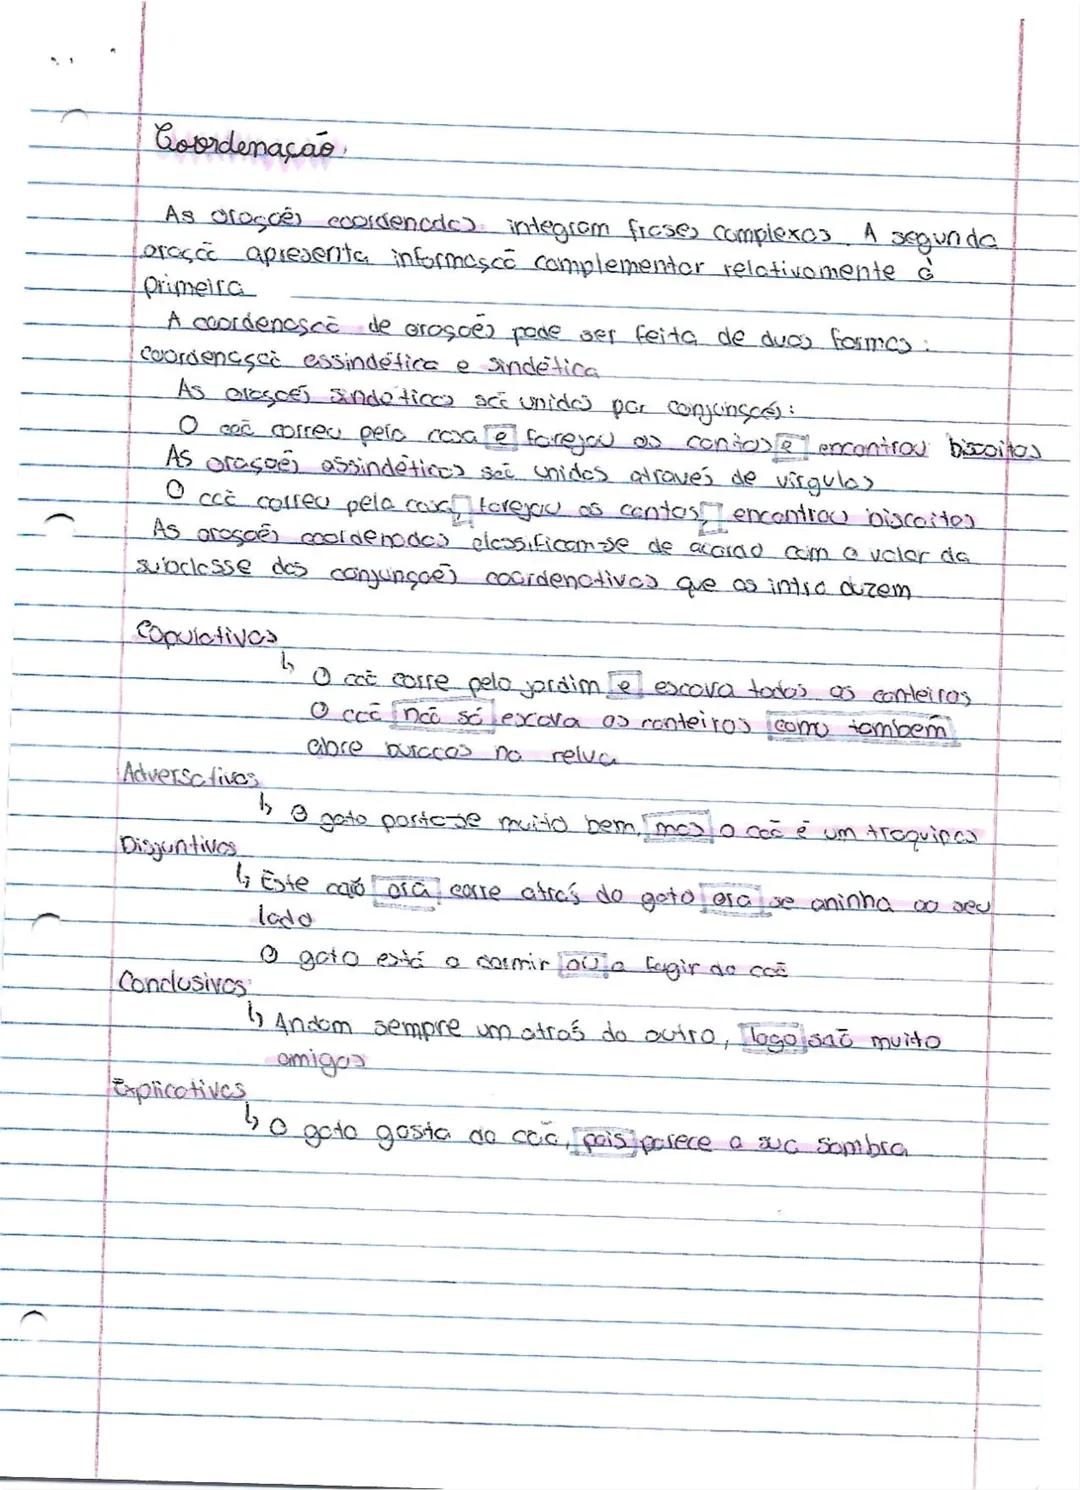 Coordenação
As orações coordenadas integram frases complexas. A segunda
oração apresenta informação complementar relativamente à
primeira
A coordenação de orações pode ser feita de duas formas:
coordenação assindética e sindética
As orações sindéticas são unidas por conjunções:
O cão correu pela casa e farejou os cantos e encontrou biscoitos
As orações assindéticas são unidas através de vírgulas
O cão correu pela casa, farejou os cantos, encontrou biscoitos
As orações coordenadas classificam-se de acordo com o valor da
subclasse das conjunções coordenativas que as introduzem
Copulativas
↳ O cão corre pelo jardim e escava todos os canteiros
O cão não só escava os canteiros como também
abre buracos na relva
Adversativas
↳ O gato porta-se muito bem, mas o cão é um traquinas
Disjuntivas
↳ Este cão ora corre atrás do gato ora se aninha ao seu
lado
O gato está a dormir ou a fugir do cão
Conclusivas
↳ Andam sempre um atrás do outro, logo são muito
amigos
Explicativas
↳ O gato gosta do cão, pois parece a sua sombra